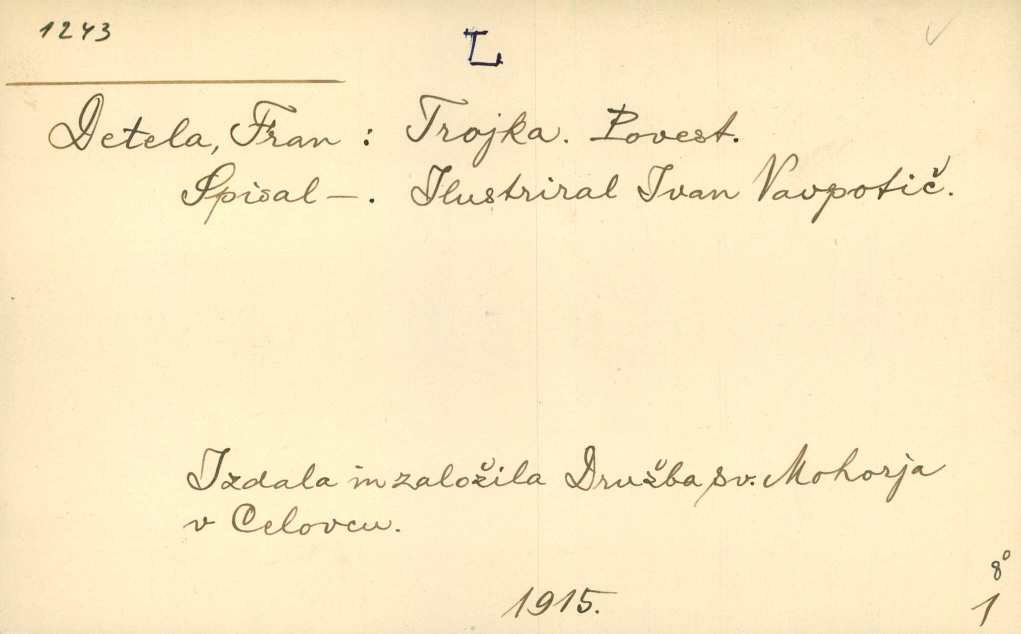 1243
L
Detela, Fran : Trojka. Povest.
Spisal —. Ilustriral Ivan Vavpotič.
Izdala in založila Družba sv. Mohorja
v Celovcu.
1915.
8°
1